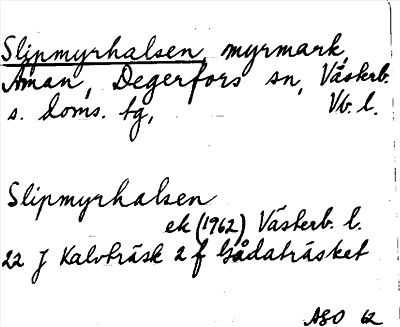 Slipmyrhalsen, myrmark,
Åman, Degerfors sn, Västerb.
s. doms. tg, Vb. l.
Slipmyrhalsen
ek (1962) Västerb. l.
22 J Kalvträsk 2 f Gådaträsket
ASO 62